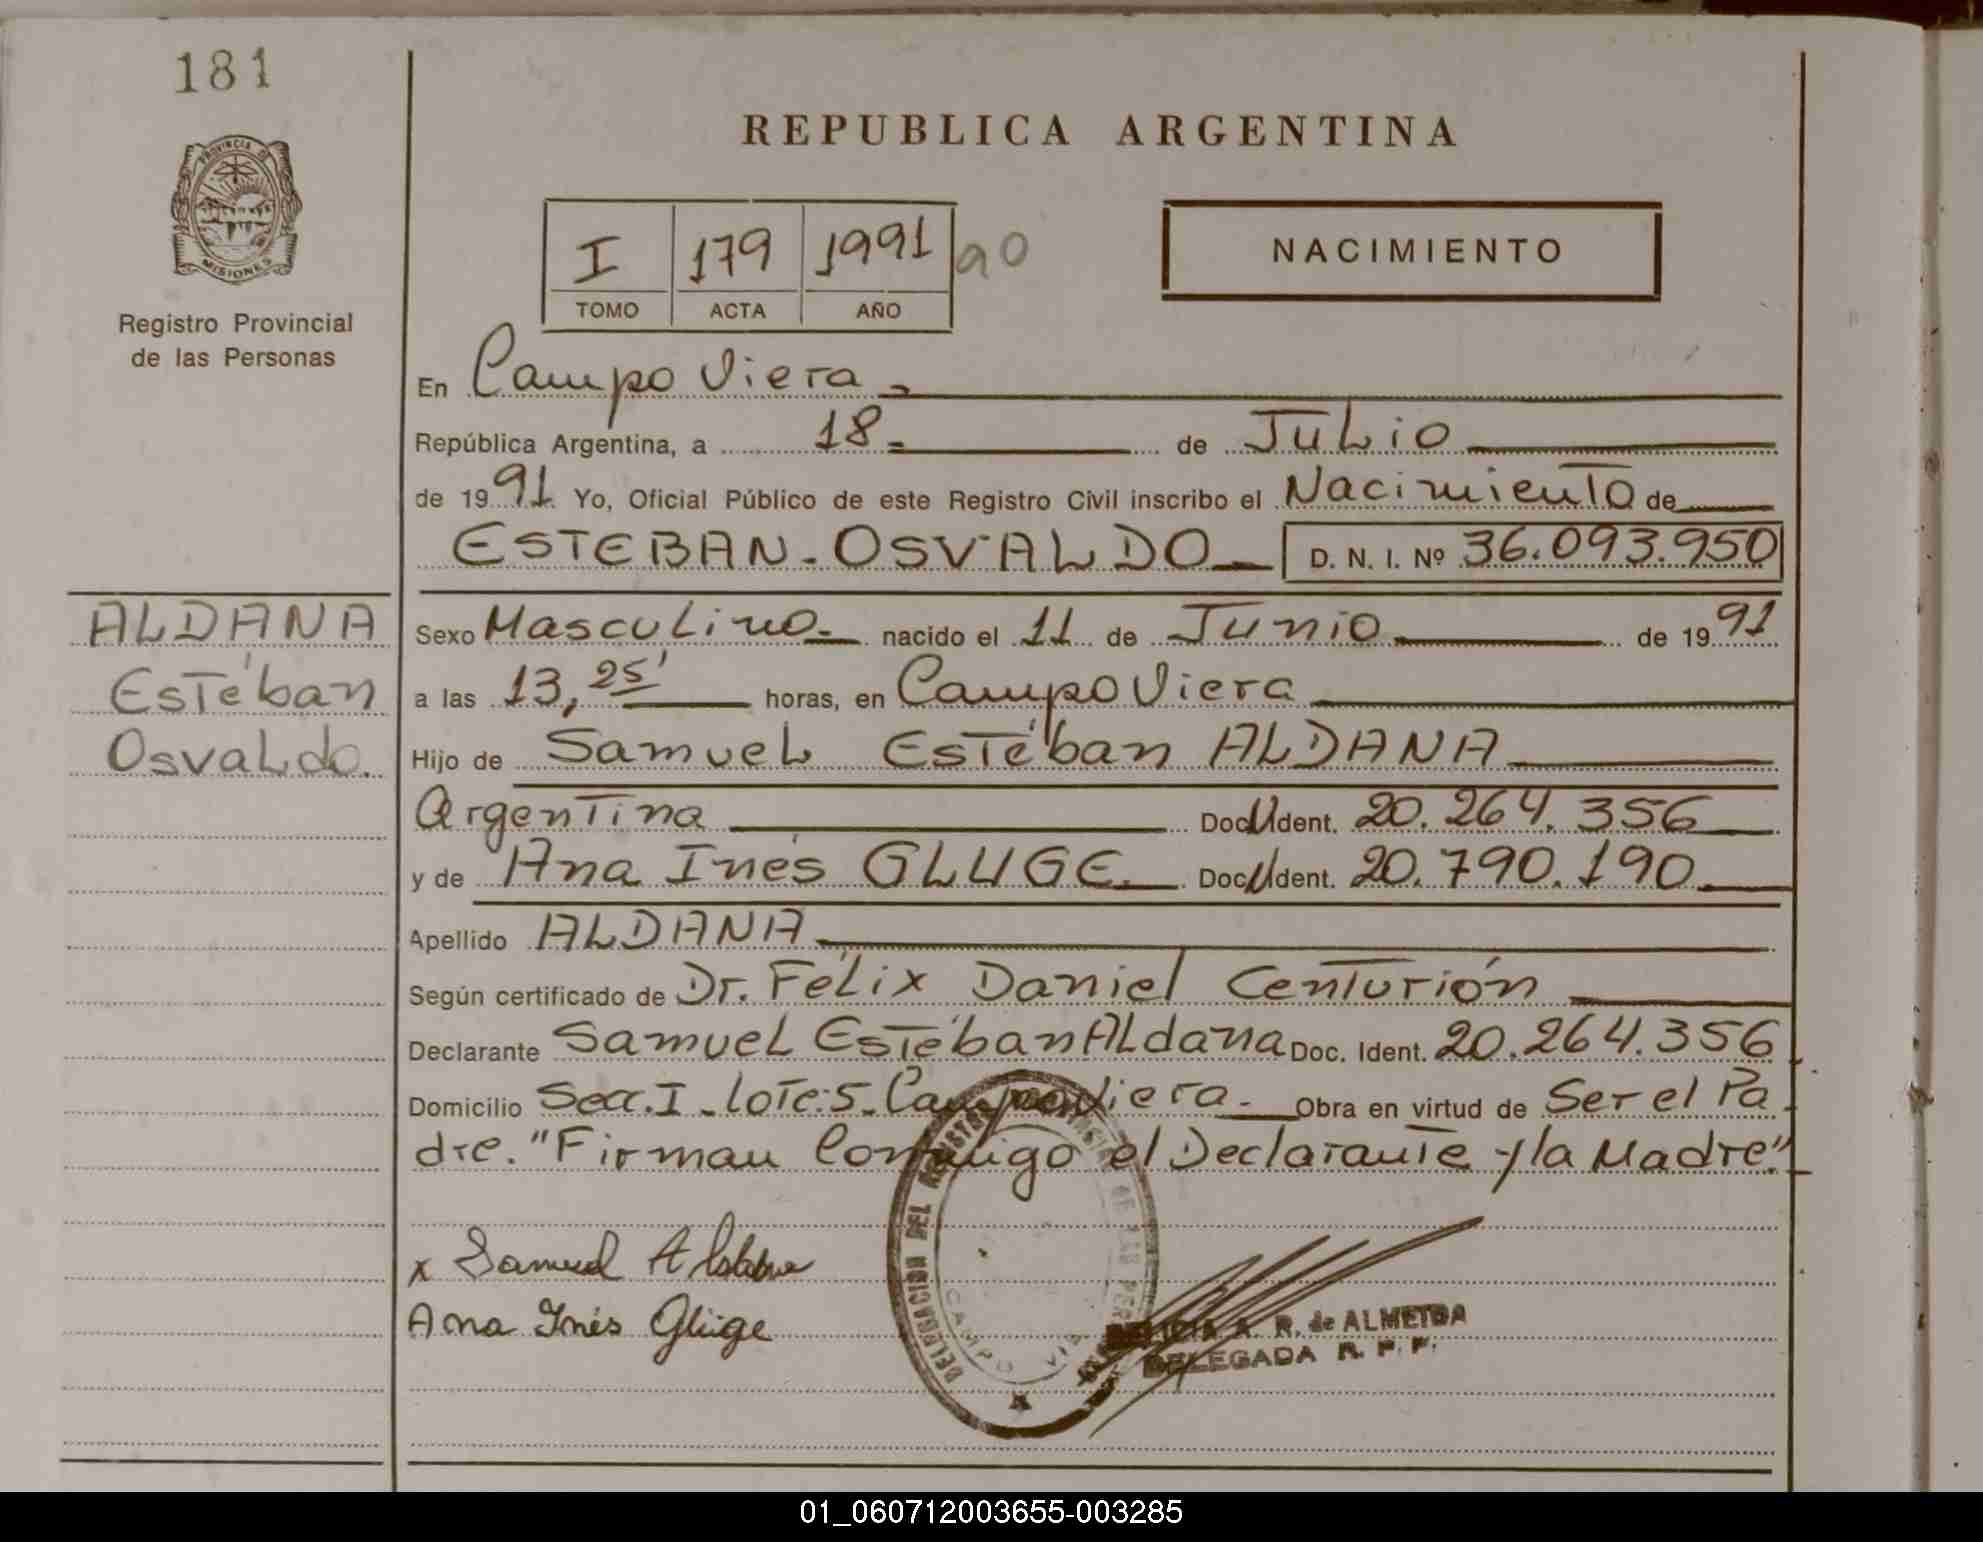 181
REPUBLICA ARGENTINA
PROVINCIA DE
MISIONES
Registro Provincial
de las Personas
I 179 1991 90
TOMO ACTA AÑO
NACIMIENTO
En Campo Viera
República Argentina, a 18 de Julio
de 1991 Yo, Oficial Público de este Registro Civil inscribo el Nacimiento de
ESTEBAN OSVALDO D. N. I. Nº 36.093.950
ALDANA
Estéban
Osvaldo.
Sexo Masculino nacido el 11 de Junio de 1991
a las 13,25' horas, en Campo Viera
Hijo de Samuel Estéban ALDANA
Argentina Doc. Ident. 20.264.356
y de Ana Inés GLUGE. Doc. Ident. 20.790.190
Apellido ALDANA
Según certificado de Dr. Félix Daniel Centurión
Declarante Samuel Estéban Aldana Doc. Ident. 20.264.356
Domicilio Secc. I - lote: 5. Campo Viera. Obra en virtud de Ser el Pa-
dre. "Firman Conmigo el Declarante y la Madre".
x Samuel Aldana
Ana Inés Glüge
DELEGACION DEL REGISTRO DE LAS PER
CAMPO VIE
A. R. de ALMEIDA
DELEGADA R. P. P.
01_060712003655-003285